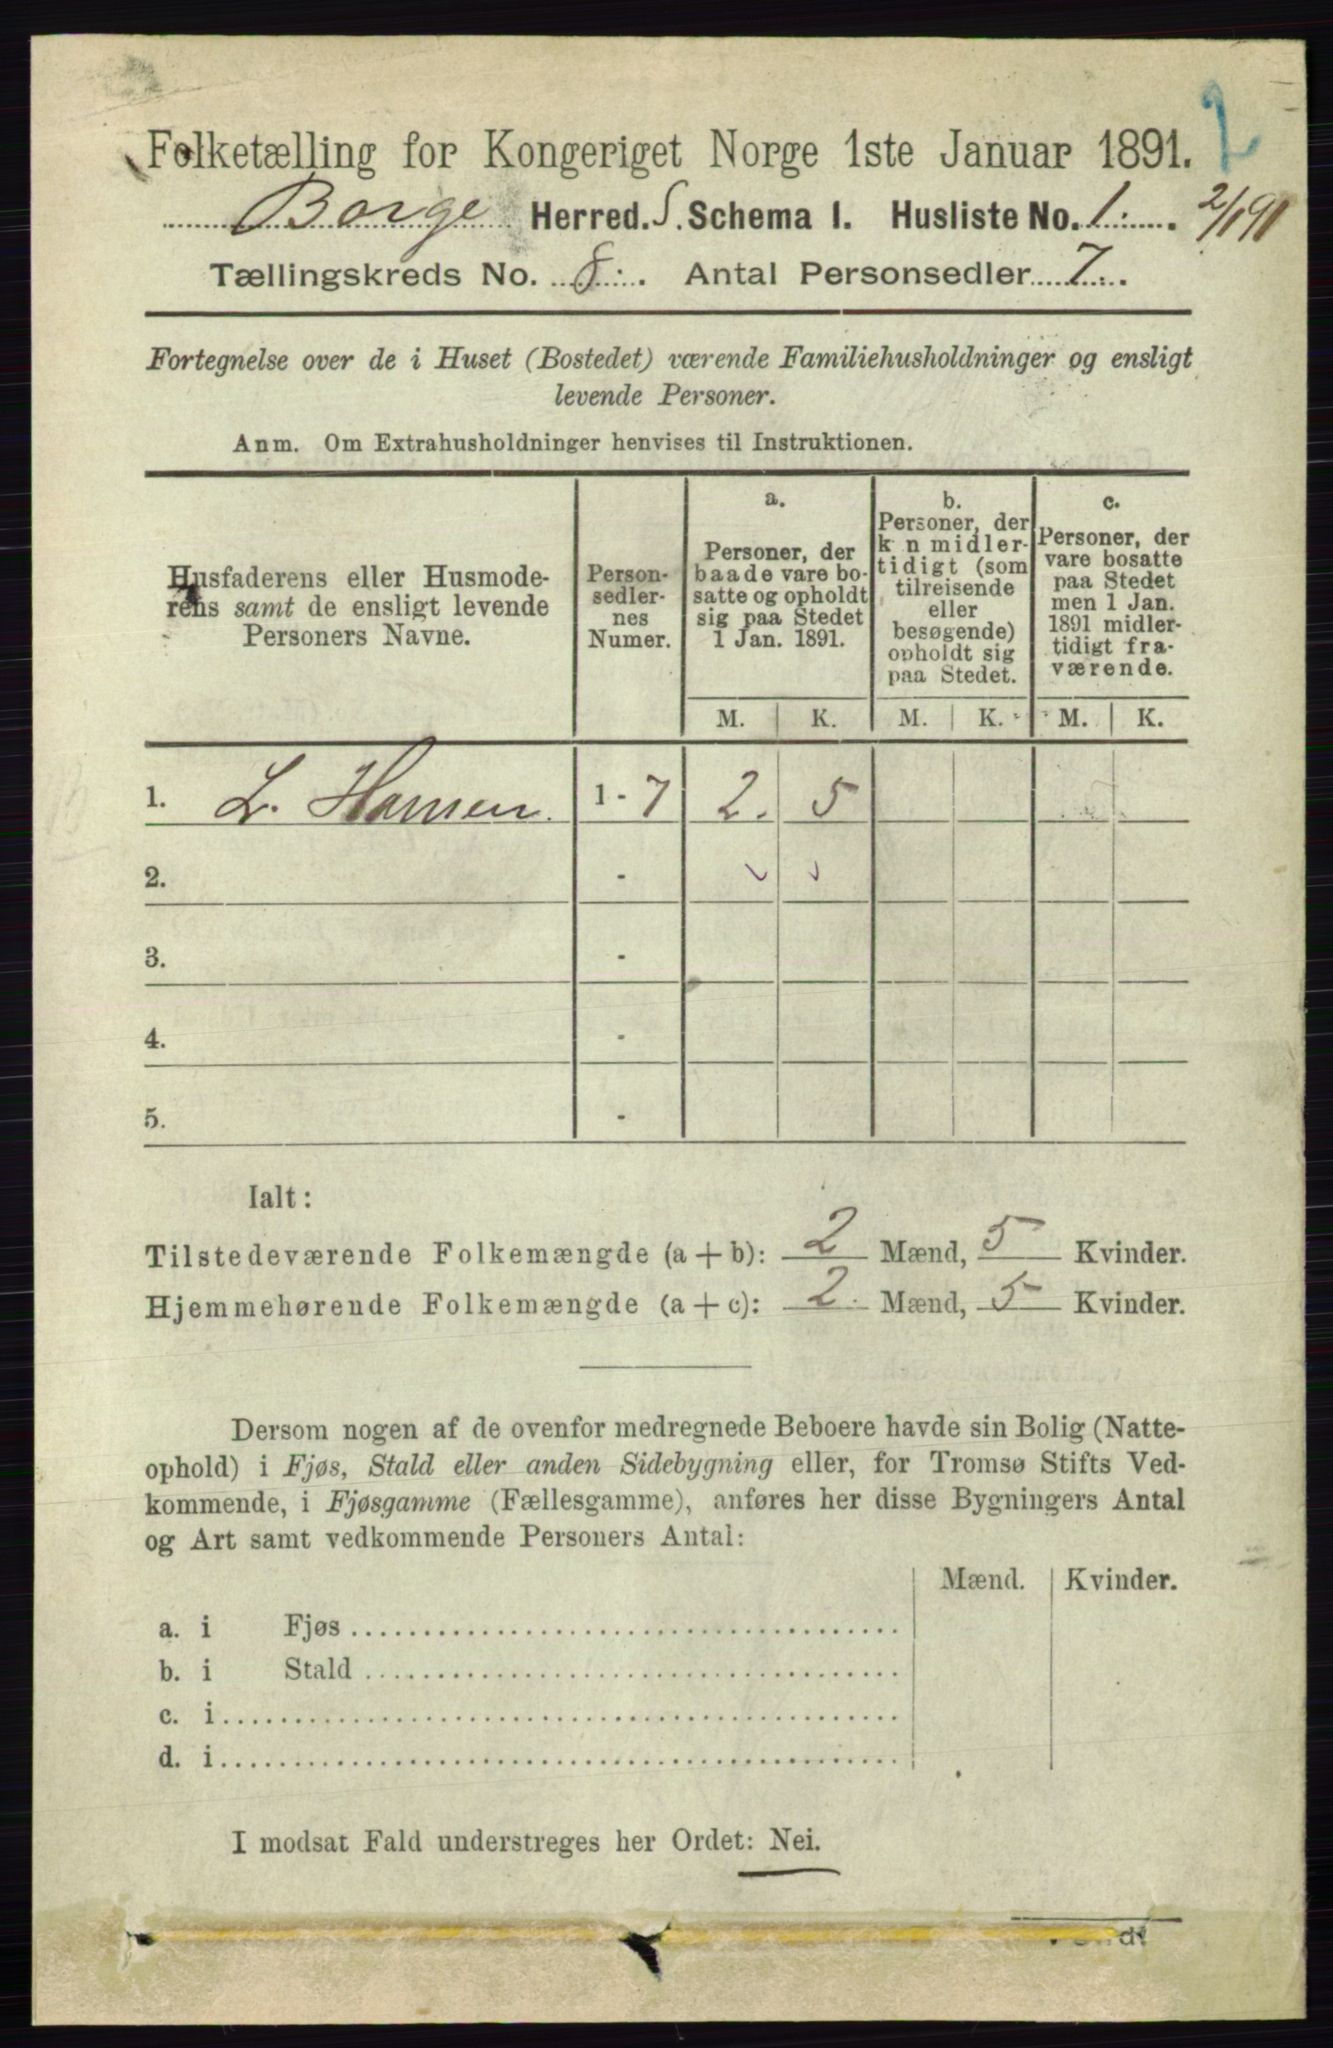 2
Folketælling for Kongeriget Norge 1ste Januar 1891.
Borge Herred. S. Schema 1. Husliste No. 1. 2/1 91
Tællingskreds No. 8. Antal Personsedler 7.
Fortegnelse over de i Huset (Bostedet) værende Familiehusholdninger og ensligt
levende Personer.
Anm. Om Extrahusholdninger henvises til Instruktionen.
Husfaderens eller Husmode-
rens samt de ensligt levende
Personers Navne.
Person-
sedler-
nes
Numer.
a.
Personer, der
baade vare bo-
satte og opholdt
sig paa Stedet
1 Jan. 1891.
b.
Personer, der
k n midler-
tidigt (som
tilreisende
eller
besøgende)
opholdt sig
paa Stedet.
c.
Personer, der
vare bosatte
paa Stedet
men 1 Jan.
1891 midler-
tidigt fra-
værende.
M. K. M. K. M. K.
1. L. Hansen. 1 - 7 2. 5
2. -
3. -
4. -
5. -
Ialt:
Tilstedeværende Folkemængde (a + b): 2 Mænd, 5 Kvinder.
Hjemmehørende Folkemængde (a + c): 2. Mænd, 5 Kvinder.
Dersom nogen af de ovenfor medregnede Beboere havde sin Bolig (Natte-
ophold) i Fjøs, Stald eller anden Sidebygning eller, for Tromsø Stifts Ved-
kommende, i Fjøsgamme (Fællesgamme), anføres her disse Bygningers Antal
og Art samt vedkommende Personers Antal:
Mænd. Kvinder.
a. i Fjøs
b. i Stald
c. i
d. i
I modsat Fald understreges her Ordet: Nei.